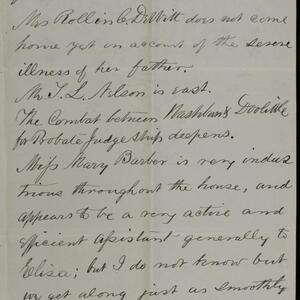 Mrs Rollin C. DeWitt does not come
home yet on account of the severe
illness of her father.
Mr. T. L. Nelson is east.
The Combat between Washburn & Doolittle
for Probate Judge ship deepens.
Miss Mary Barber is very indus
trious throughout the house, and
appears to be a very active and
efficient assistant generally to
Eliza; but I do not know but
we get along just as smoothly